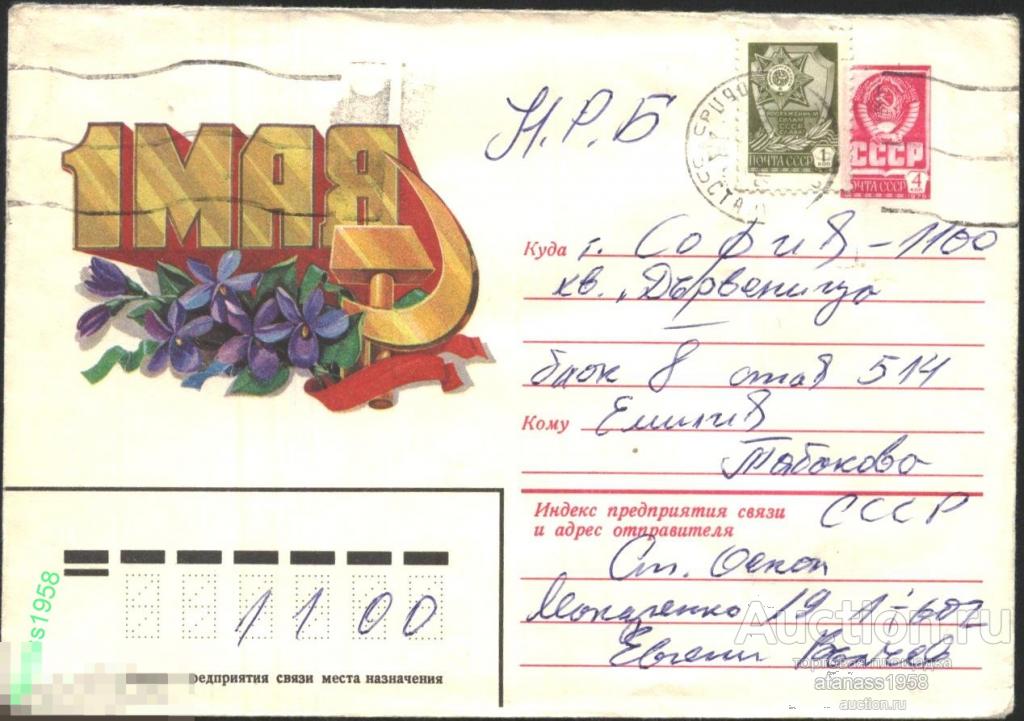 1 МАЯ
Н.Р.Б
ВООРУЖЕННЫМ СИЛАМ СССР
ПОЧТА СССР 1 КОП
СССР
ПОЧТА СССР 4 КОП
Куда г. София - 1100
кв. "Дървеница
блок 8 стая 514
Кому Емилия
Табакова
Индекс предприятия связи
и адрес отправителя
СССР
Ст. Оскол
Макаренко 19 1-602
Евгени
1100
редприятия связи места назначения
ss1958
Auction.ru
торговая площадка
atanass1958
auction.ru